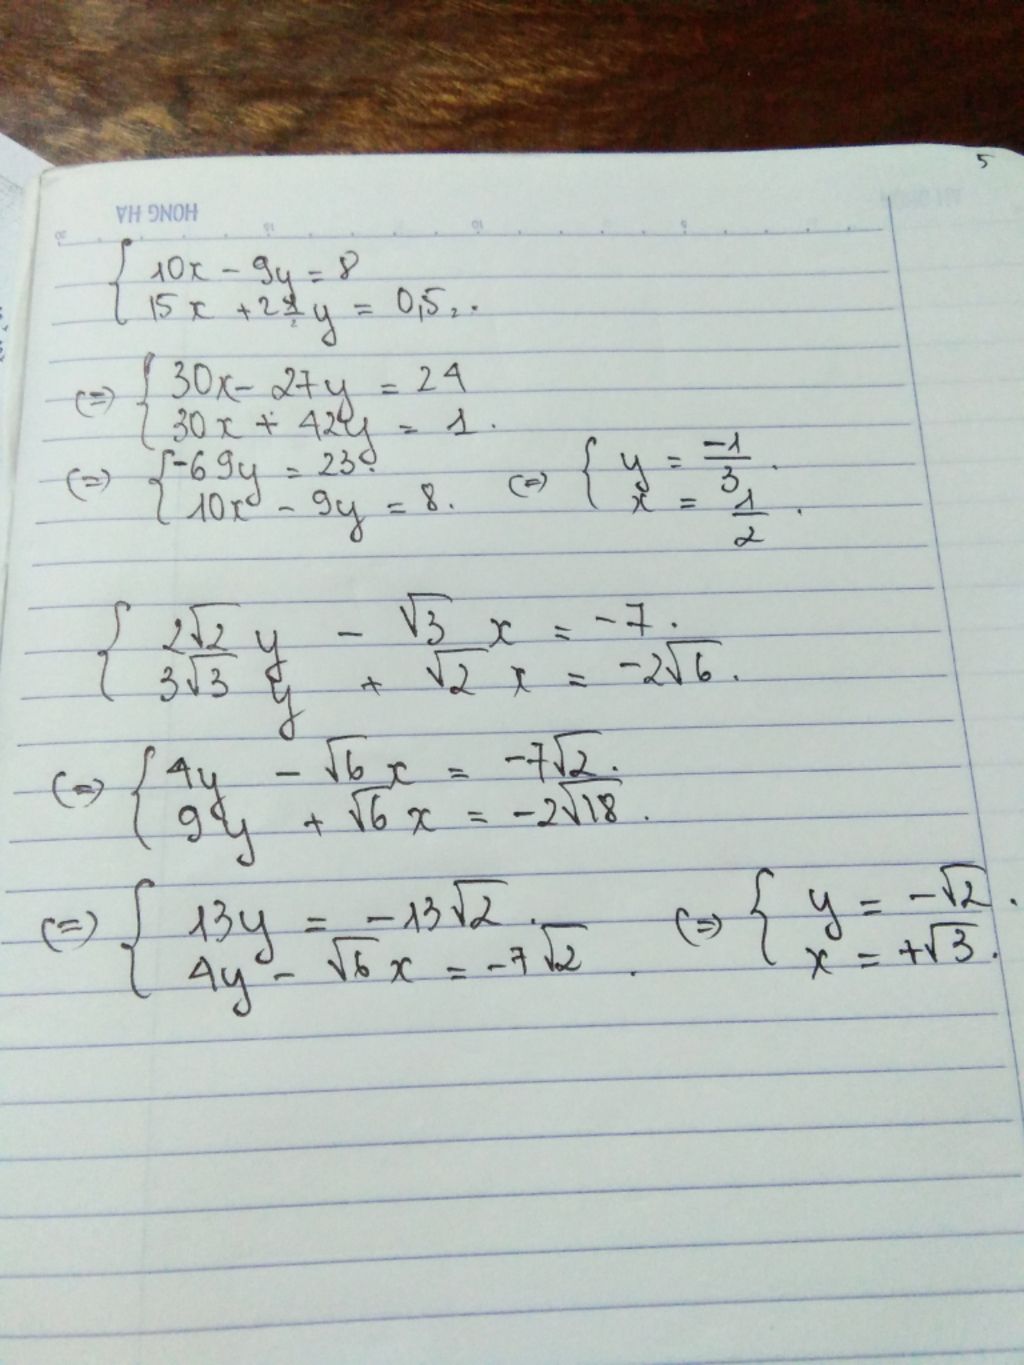 5
HONG HA
{ 10x - 9y = 8
15x + 21y = 0,5.
(=) { 30x - 27y = 24
30x + 42y = 1.
(=) { -69y = 23. (=) { y = -1/3.
10x - 9y = 8. x = 1/2.
{ 2√2 y - √3 x = -7.
3√3 y + √2 x = -2√6.
(=) { 4y - √6 x = -7√2.
9y + √6 x = -2√18.
(=) { 13y = -13√2. (=) { y = -√2.
4y - √6 x = -7√2. x = +√3.